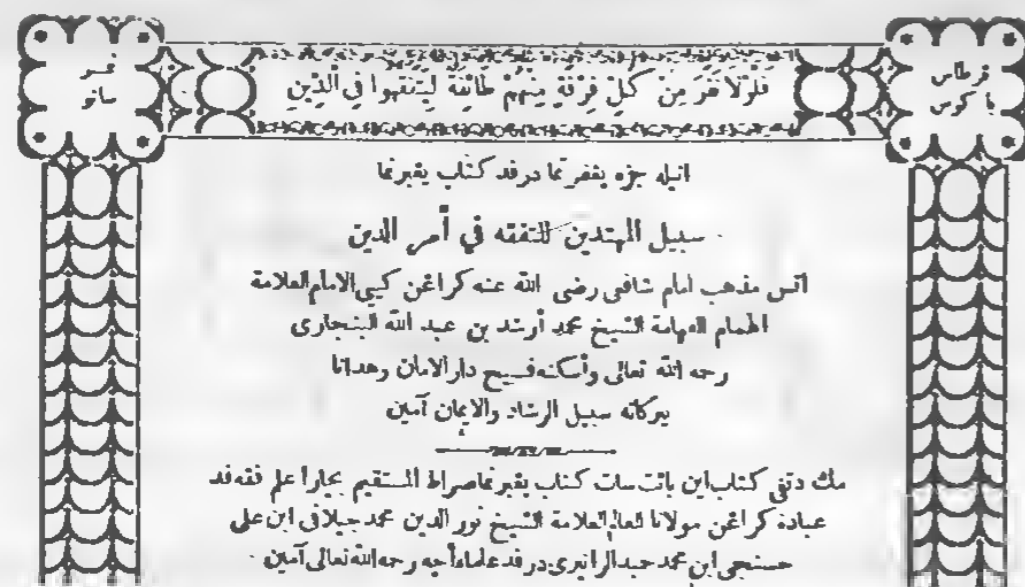 قرطاس
باكوس
فلولا نفر من كل فرقة منهم طائفة ليتفقهوا في الدين
نمبر
ساتو
انيله جزء يڠفرتما درفد كتاب يڠبرنما
سبيل المهتدين للتفقه في أمر الدين
اتس مذهب امام شافعي رضى الله عنه كراڠن كيي الامام العلامة
الهمام الفهامة الشيخ محمد أرشد بن عبد الله البنجاري
رحمه الله تعالى وأسكنه فسيح دار الامان وهدانا
ببركاته سبيل الرشاد والايمان آمين
مك دتڤي كتاب اين بائت سات كتاب يڠبرنما صراط المستقيم بچارا علم فقه فد
عبادة كراڠن مولانا العالم العلامة الشيخ نور الدين محمد جيلاني ابن علي
حسنجي ابن محمد حميد الرانيري درفد علماء أچه رحمه الله تعالى آمين